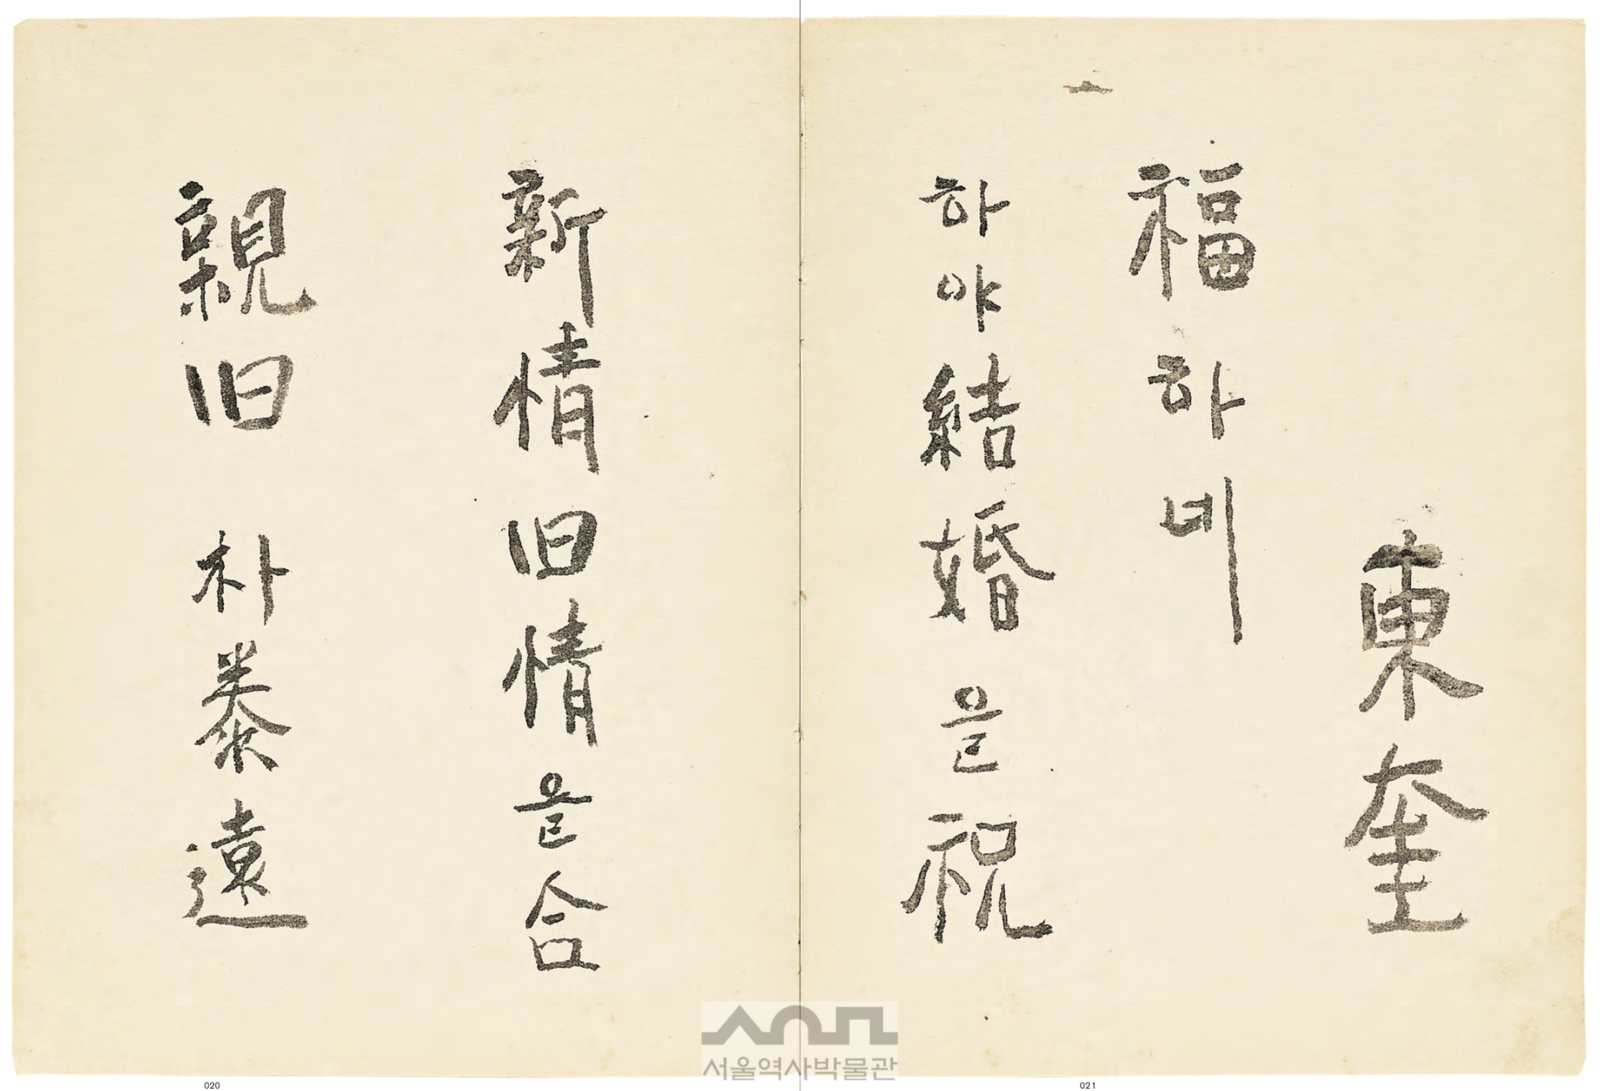 親旧 朴泰遠
新情旧情을合
하야結婚을祝
福하네
東奎
서울역사박물관
020
021